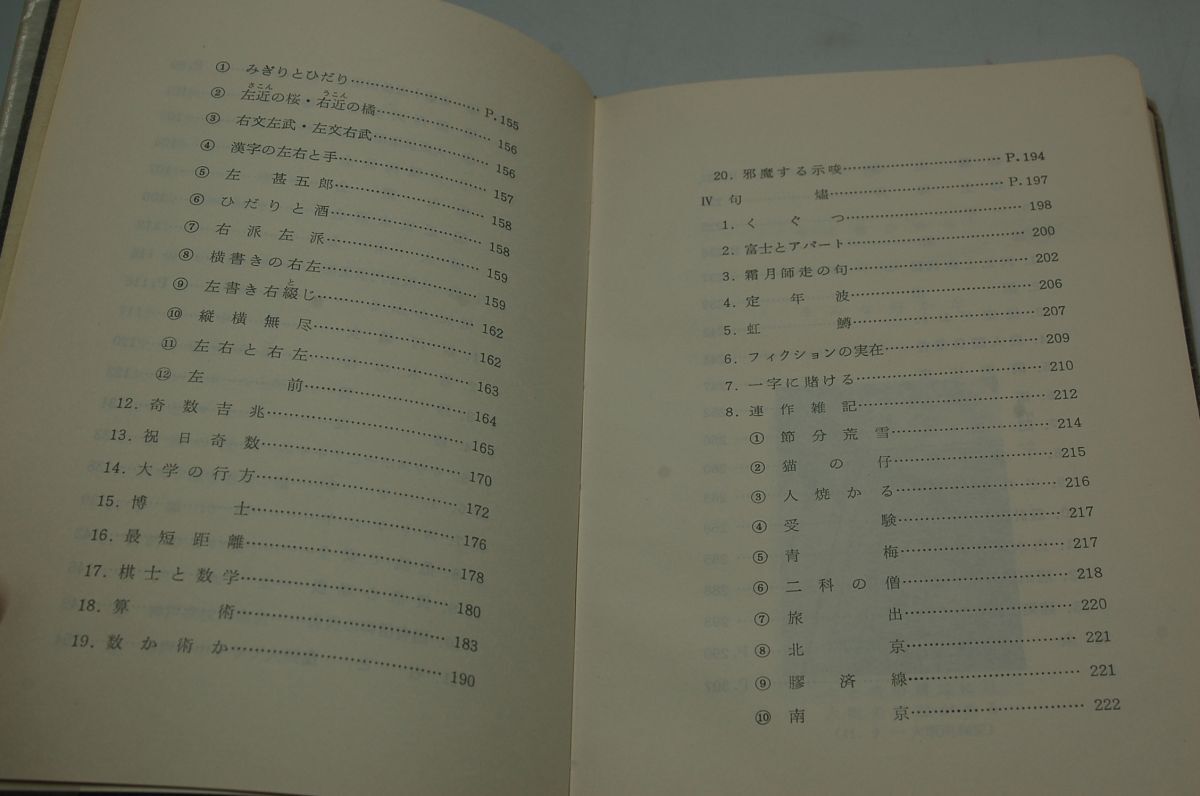 ① みぎりとひだり…………………P.155
② 左近の桜・右近の橘…………………156
③ 右文左武・左文右武…………………156
④ 漢字の左右と手…………………157
⑤ 左 甚五郎…………………158
⑥ ひだりと酒…………………158
⑦ 右派左派…………………159
⑧ 横書きの右左…………………159
⑨ 左書き右綴じ…………………162
⑩ 縦横無尽…………………162
⑪ 左右と右左…………………163
⑫ 左前…………………164
12. 奇数吉兆…………………165
13. 祝日奇数…………………170
14. 大学の行方…………………172
15. 博士…………………176
16. 最短距離…………………178
17. 棋士と数学…………………180
18. 算術…………………183
19. 数か術か…………………190
20. 邪魔する示唆…………………P.194
Ⅳ 句燼…………………P.197
1. くぐつ…………………198
2. 富士とアパート…………………200
3. 霜月師走の句…………………202
4. 定年波…………………206
5. 虹鱒…………………207
6. フィクションの実在…………………209
7. 一字に賭ける…………………210
8. 連作雑記…………………212
① 節分荒雪…………………214
② 猫の仔…………………215
③ 人焼かる…………………216
④ 受験…………………217
⑤ 青梅…………………217
⑥ 二科の僧…………………218
⑦ 旅出…………………220
⑧ 北京…………………221
⑨ 膠済線…………………221
⑩ 南京…………………222